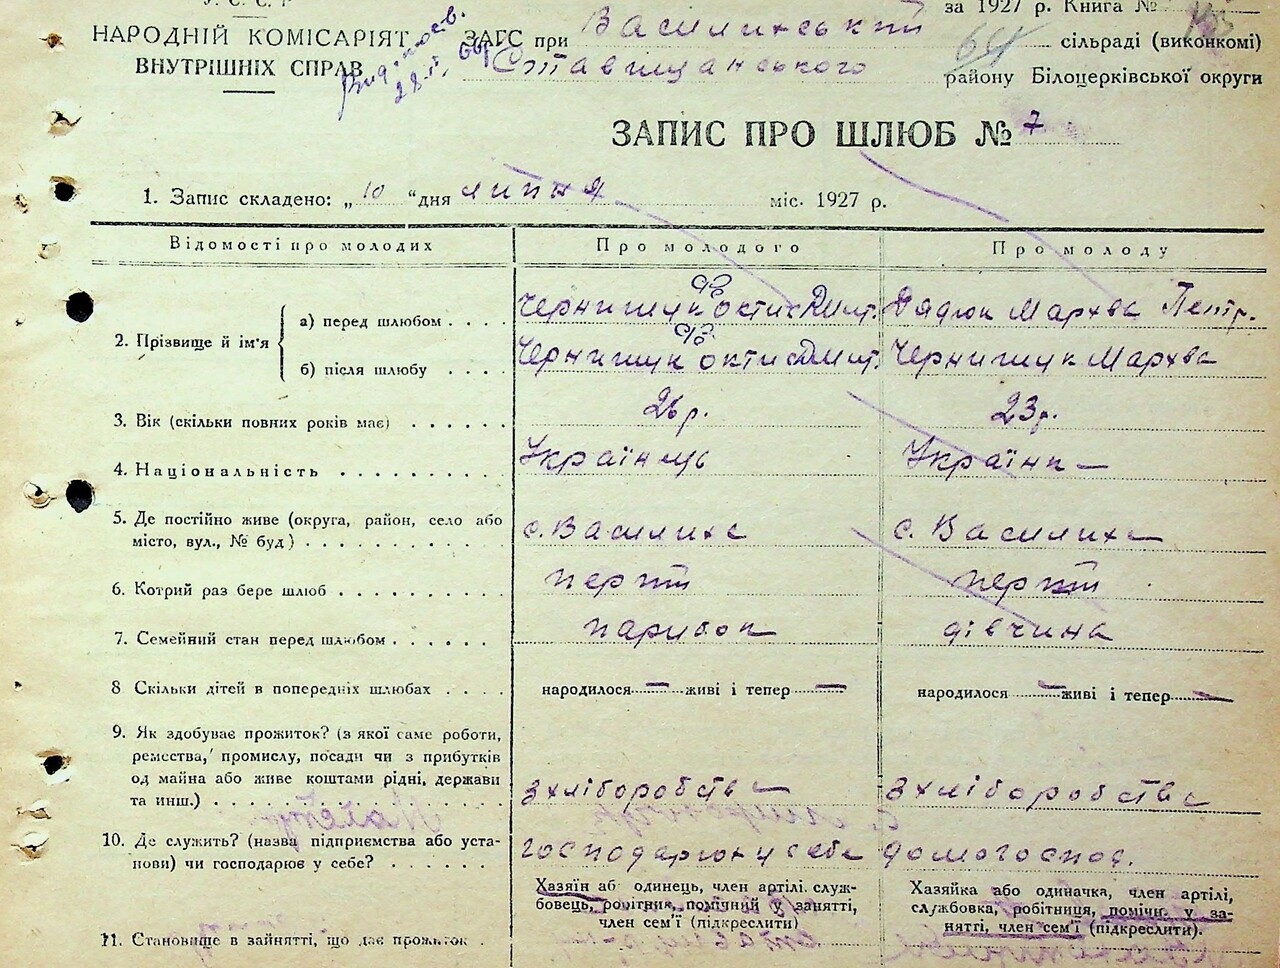 У. С. С. Р
за 1927 р. Книга №
НАРОДНІЙ КОМІСАРІЯТ
ВНУТРІШНІХ СПРАВ
ЗАГС при Василихський сільраді (виконкомі)
Ставищанського району Білоцерківської округи
ЗАПИС ПРО ШЛЮБ № 7
1. Запис складено: „ 10 “ дня липня міс. 1927 р.
Відомості про молодих Про молодого Про молоду
2. Прізвище й ім'я
а) перед шлюбом . . . . Чернишук октис Дмит. Дядюк Мархва Петр.
б) після шлюбу . . . . Чернишук октис Дмит. Чернишук Мархва
3. Вік (скільки повних років має) . . . . . . 26 р. 23 р.
4. Національність . . . . . . . . . Українць Українк
5. Де постійно живе (округа, район, село або
місто, вул., № буд) . . . . . . . . . . . с. Василиха с. Василиха
6. Котрий раз бере шлюб . . . . . . . . . перший перший
7. Семейний стан перед шлюбом . . . . . . парубок дівчина
8 Скільки дітей в попередніх шлюбах . . . . народилося — живі і тепер — народилося — живі і тепер —
9. Як здобуває прожиток? (з якої саме роботи,
ремества, промислу, посади чи з прибутків
од майна або живе коштами рідні, держави
та инш.) . . . . . . . . . . . . . . . . з хліборобства з хліборобства
10. Де служить? (назва підприємства або уста-
нови) чи господарює у себе? . . . . . . господарюн у себе домогоспод.
11. Становище в зайнятті, що дає прожиток .
Хазяїн аб одинець, член артілі. служ-
бовець, робітник, помічний у занятті,
член сем'ї (підкреслити)
Хазяйка або одиначка, член артілі,
службовка, робітниця, помічн. у за-
нятті, член сем'ї (підкреслити).